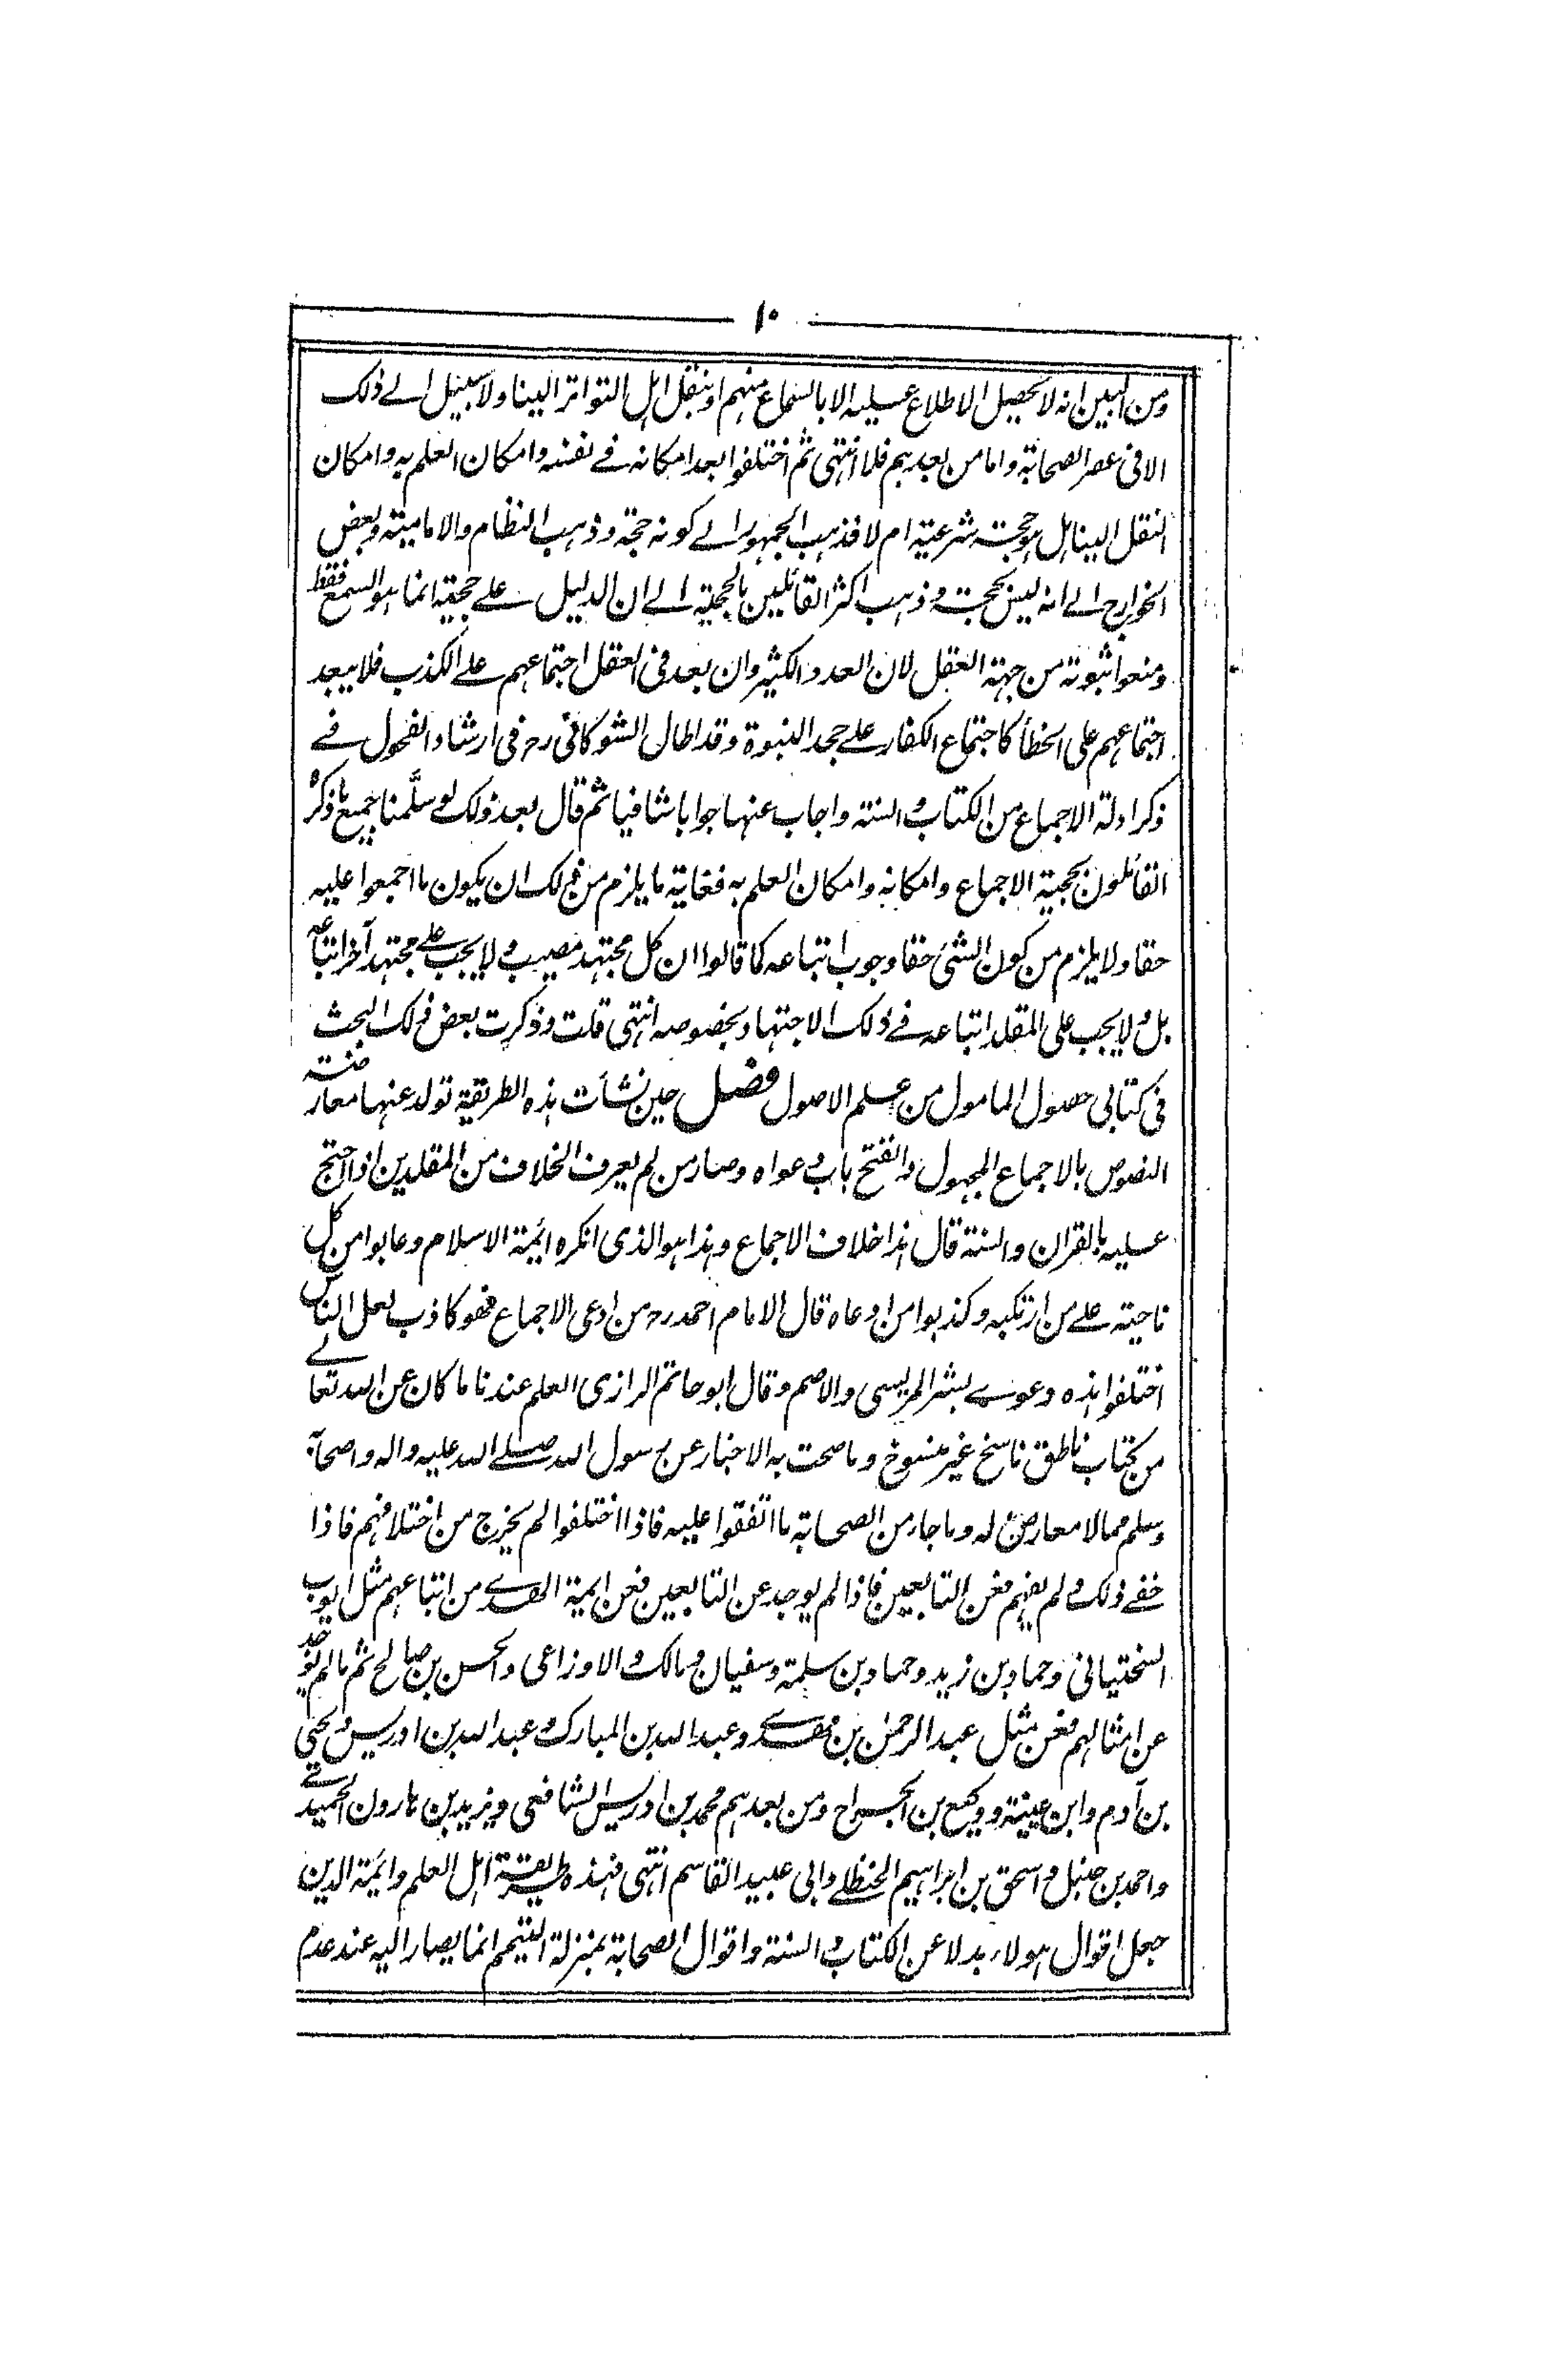 ١٠
ومن البين انه لا يحصل الاطلاع عليه الا بالسماع منهم او بنقل اهل التواتر الينا ولا سبيل الے ذلك
الا فی عصر الصحابة واما من بعدهم فلا انتهى ثم اختلفوا بعد امكانه فے نفسه وامكان العلم به وامكان
النقل الينا هل هو حجة شرعية ام لا فذهب الجمهور الے كونه حجة وذهب النظام والامامية وبعض
الخوارج الے انه ليس بحجت وذهب اكثر القائلين بالحجية الے ان الدليل علے حجية انما هو السمع فقط
ومنعوا ثبوته من جهة العقل لان العدد الكثير وان بعد فی العقل اجتماعهم علے الكذب فلا يبعد
اجتماعهم على الخطأ كاجتماع الكفار علے جحد النبوة وقد اطال الشوكانی رحـ فی ارشاد الفحول فے
ذكر ادلة الاجماع من الكتاب والسنة واجاب عنها جوابا شافيا ثم قال بعد ذلك لو سلّمنا جميع ما ذكره
القائلون بحجية الاجماع وامكانه وامكان العلم به فغاية ما يلزم من ذلك ان يكون ما اجمعوا عليه
حقا ولا يلزم من كون الشئ حقا وجوب اتباعه كما قالوا ان كل مجتهد مصيب ولا يجب علے مجتهد آخر اتباعه
بل ولا يجب على المقلد اتباعه فے ذلك الاجتهاد بخصوصه انتهى قلت وذكرت بعض ذلك البحث
فی كتابی حصول المامول من علم الاصول فصل حين نشأت هذه الطريقة تولد عنها معارضة
النصوص بالاجماع المجهول وانفتح باب دعواه وصار من لم يعرف الخلاف من المقلدين اذا احتج
عليه بالقران والسنة قال هذا خلاف الاجماع وهذا هو الذی انكره ائمة الاسلام وعابوا من كل
ناحية علے من ارتكبه وكذبوا من ادعاه قال الامام احمد رحـ من ادعی الاجماع فهو كاذب لعل الناس
اختلفوا هذه دعوے بشر المريسی والاصم وقال ابو حاتم الرازی العلم عندنا ما كان عن الله تعالے
من كتاب ناطق ناسخ غير منسوخ وما صحت به الاخبار عن رسول الله صلے الله عليه واله واصحابه
وسلم مما لا معارض له وما جاء من الصحابة ما اتفقوا عليه فاذا اختلفوا لم يخرج من اختلافهم فاذا
خفے ذلك ولم يفهم فعن التابعين فاذا لم يوجد عن التابعين فعن ايمة الهدے من اتباعهم مثل ايوب
السختيانی وحماد بن زيد وحماد بن سلمة وسفيان ومالك والاوزاعی والحسن بن صالح ثم ما لم يوجد
عن امثالهم فعن مثل عبد الرحمن بن مهدے وعبد الله بن المبارك وعبد الله بن ادريس ويحيى
بن آدم وابن عيينة ووكيع بن الجراح ومن بعدهم محمد بن ادريس الشافعی ويزيد بن هارون الحميدے
واحمد بن حنبل واسحق بن ابراهيم الحنظلے وابی عبيد القاسم انتهى فهذه طريقة اهل العلم وائمة الدين
جعل اقوال هولاء بدلا عن الكتاب والسنة واقوال الصحابة بمنزلة التيمم انما يصار اليه عند عدم